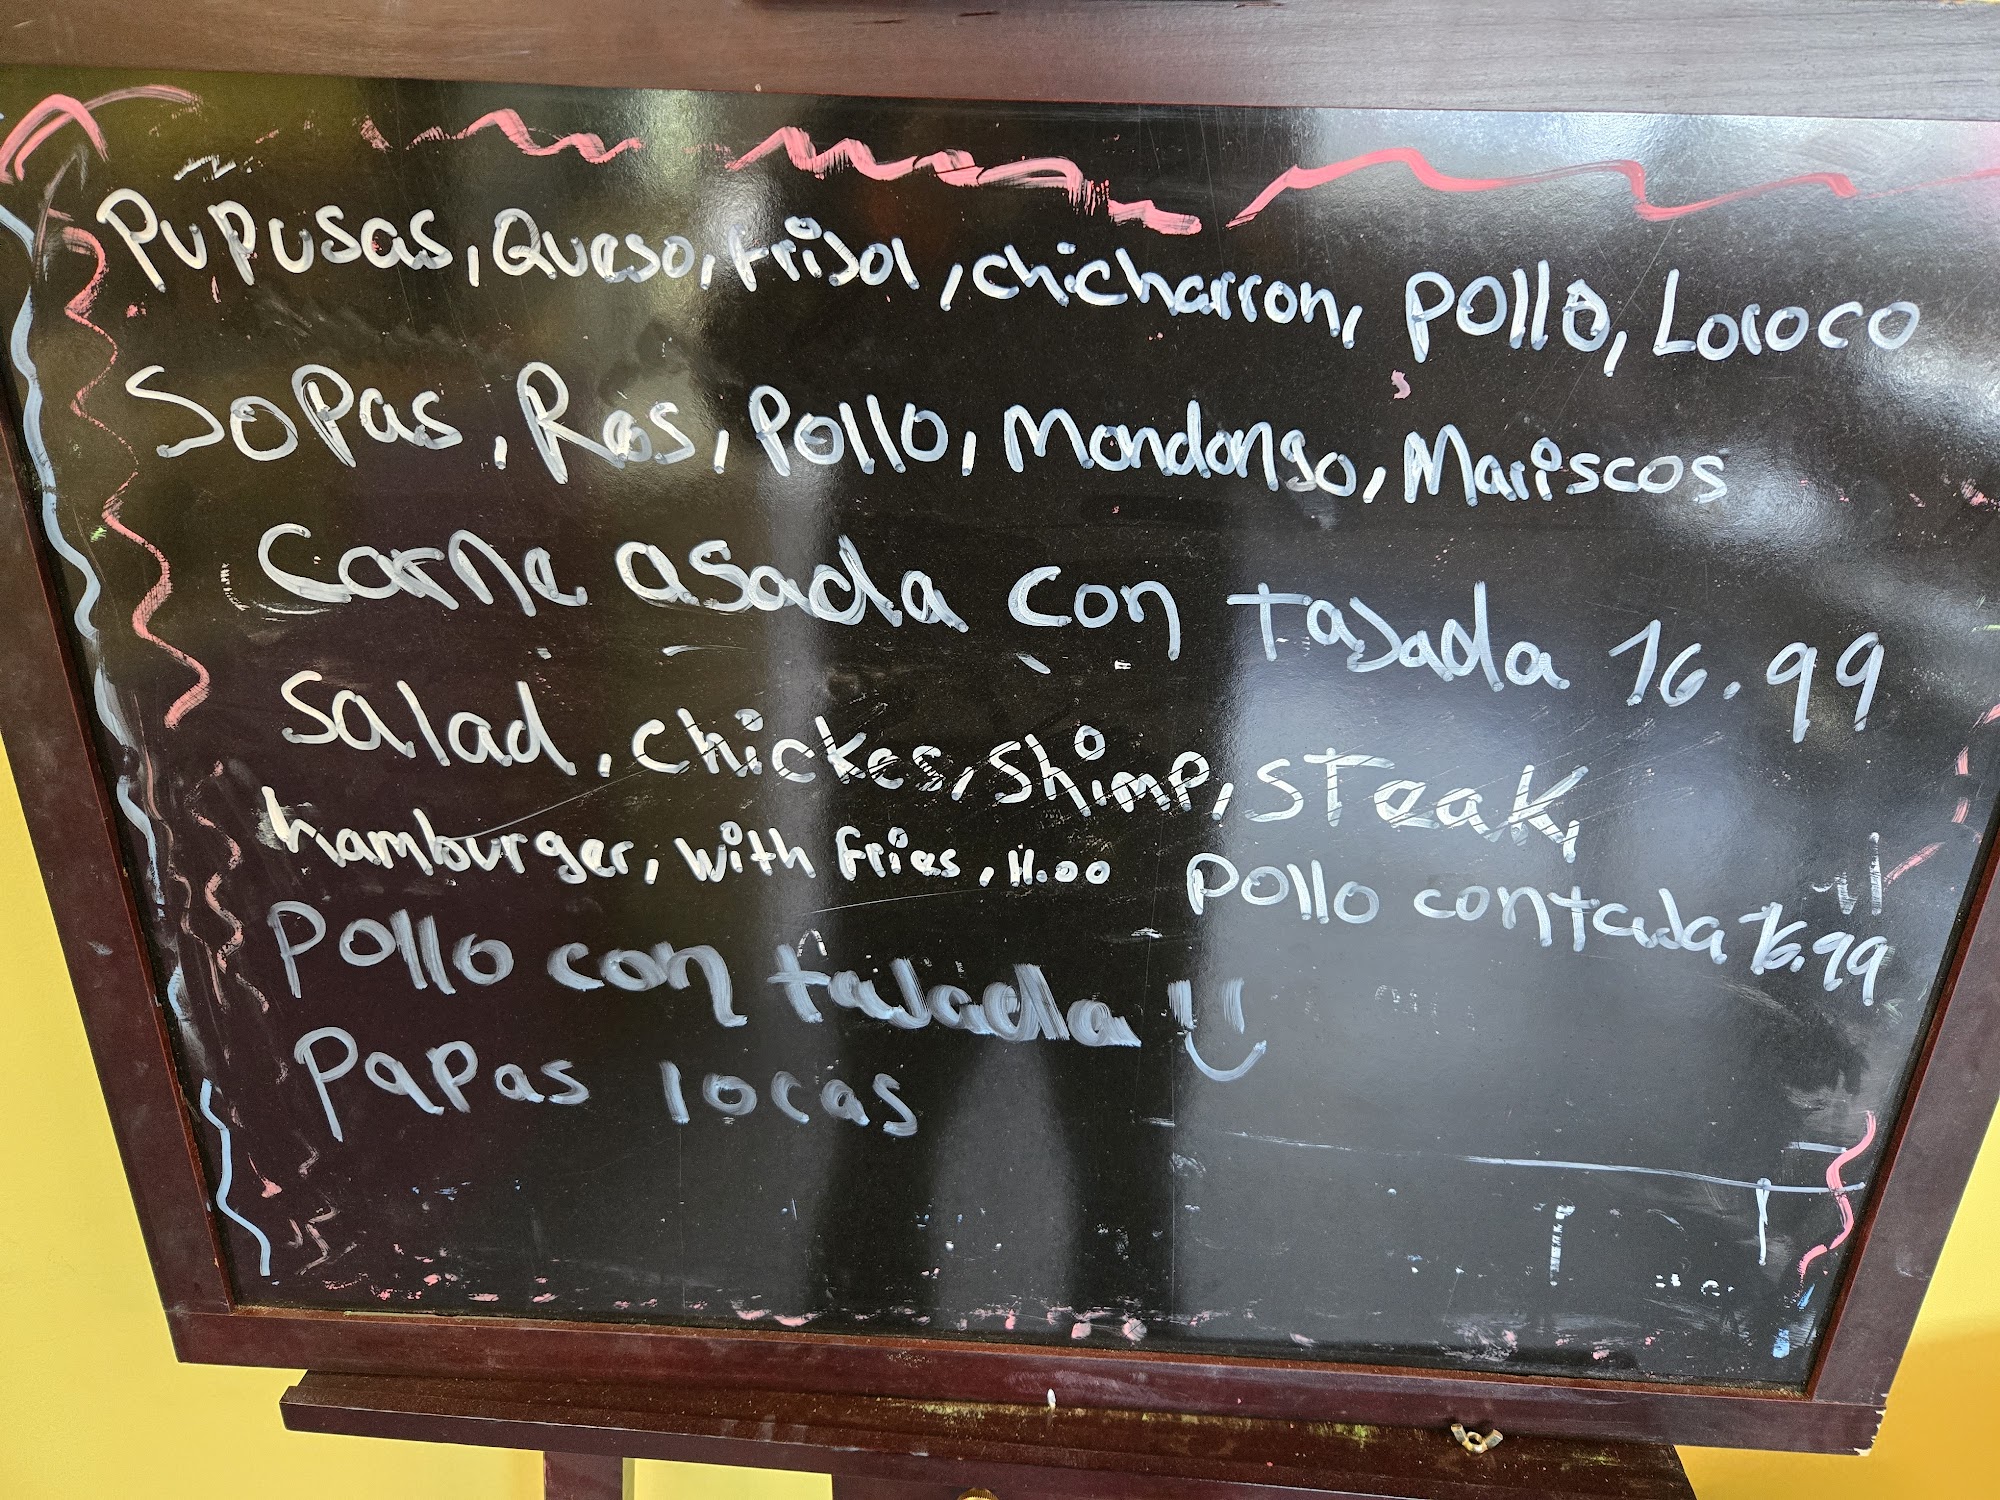 Pupusas, Queso, frijol, chicharron, pollo, Loroco
Sopas, Res, Pollo, Mondongo, Mariscos
Carne asada con tajada 16.99
Salad, chickes, shimp, steak,
hamburger, with fries, 11.00
pollo con tajada 16.99
pollo con tajada
papas locas